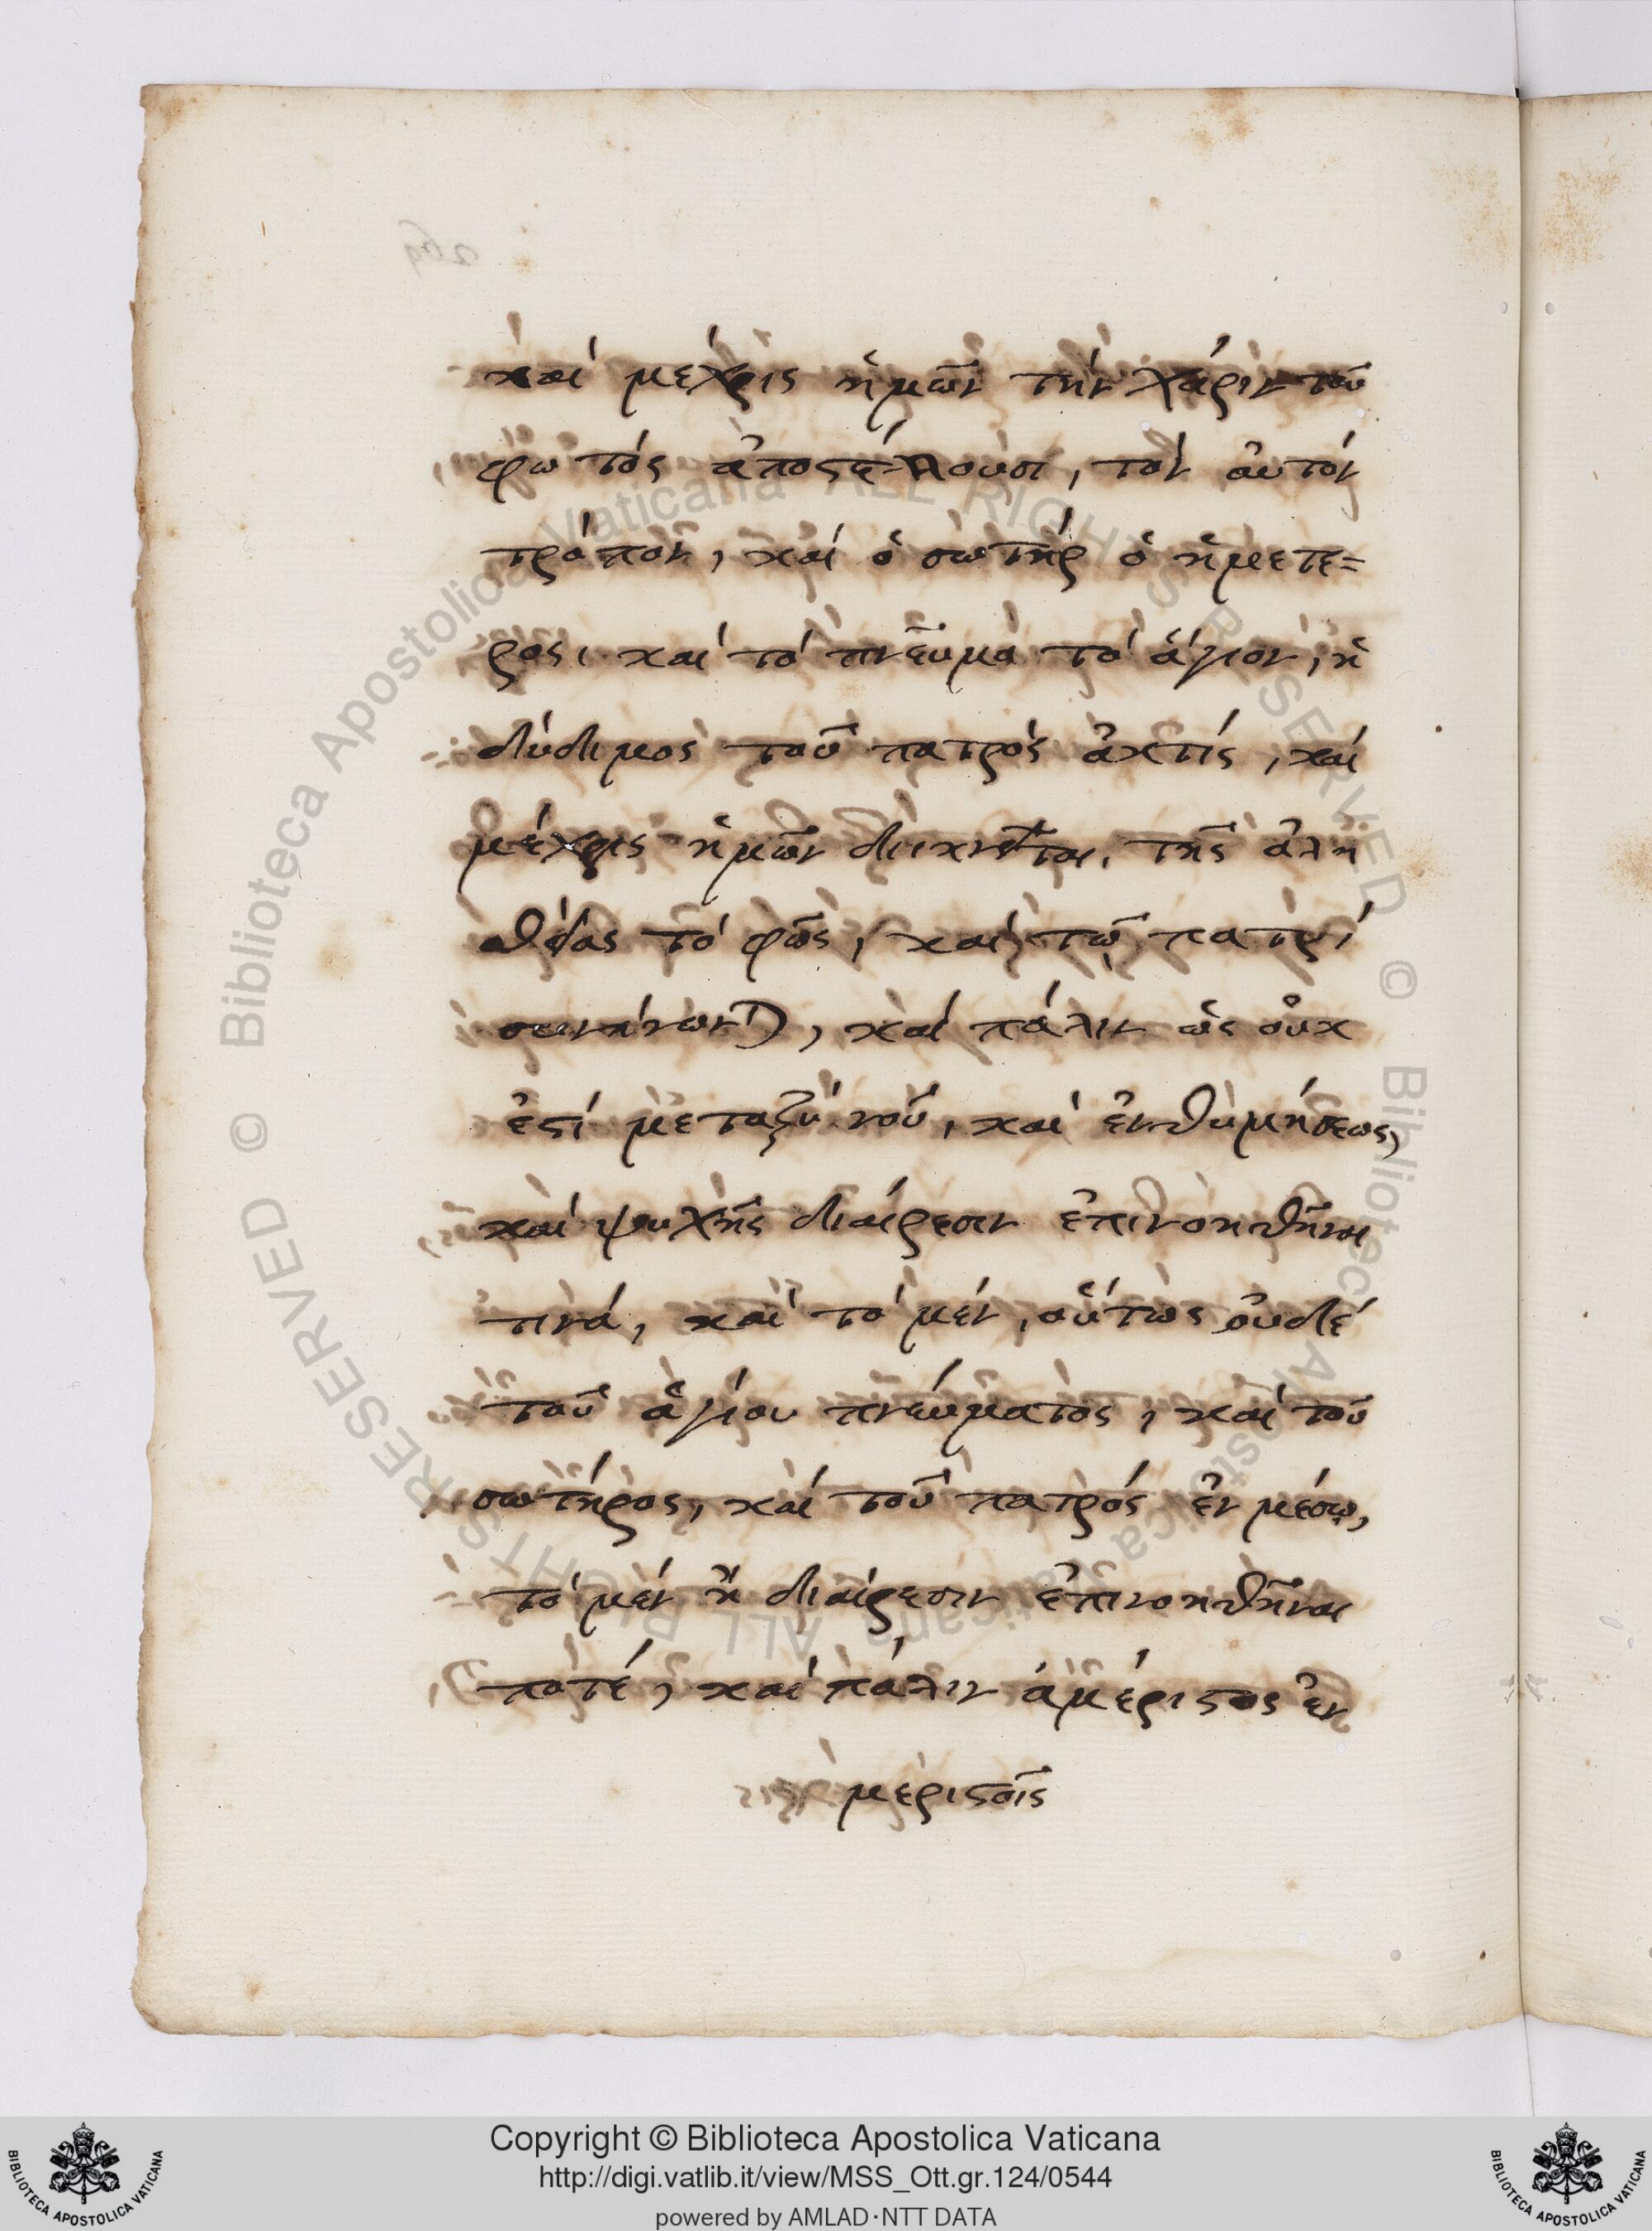 καὶ μέχρις ἡμῶν τὴν χάριν τοῦ
φωτός ἀποστέλλουσι, τὸν αὐτὸν
τρόπον, καὶ ὁ σωτήρ ὁ ἡμετε=
ρος, καὶ τὸ πνεῦμα τὸ ἅγιον, ἡ
δίδυμος τοῦ πατρὸς ἀκτίς, καὶ
μέχρις ἡμῶν διικνεῖται, τῆς ἀλη
θείας τὸ φῶς, καὶ τῷ πατρί
συνήνωται, καὶ πάλιν ὡς οὐκ
ἐστί μεταξὺ νοῦ, καὶ ἐνθυμήσεως,
καὶ ψυχῆς διαίρεσιν ἐπινοηθῆναι
τινά, καὶ τὸ μὲν, οὕτως οὐδέ
τοῦ ἁγίου πνεύματος, καὶ τοῦ
σωτῆρος, καὶ τοῦ πατρός ἐν μέσῳ,
τὸ μὲν ἢ διαίρεσιν ἐπινοηθῆναι
ποτέ, καὶ πάλιν ἀμέριστος ἐν
μεριστοῖς
© Biblioteca Apostolica Vaticana ALL RIGHTS RESERVED © Biblioteca Apostolica Vaticana ALL RIGHTS RESERVED
Copyright © Biblioteca Apostolica Vaticana
http://digi.vatlib.it/view/MSS_Ott.gr.124/0544
powered by AMLAD·NTT DATA
BIBLIOTECA APOSTOLICA VATICANA
BIBLIOTECA APOSTOLICA VATICANA